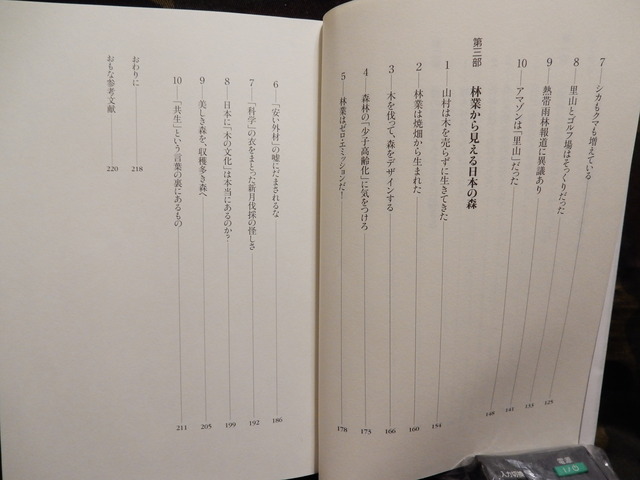 7 シカもクマも増えている 125
8 里山とゴルフ場はそっくりだった 133
9 熱帯雨林報道に異議あり 141
10 アマゾンは「里山」だった 149
第三部 林業から見える日本の森
1 山村は木を売らずに生きてきた 154
2 林業は焼畑から生まれた 160
3 木を伐って、森をデザインする 166
4 森林の「少子高齢化」に気をつけろ 173
5 林業はゼロ・エミッションだ! 178
6 「安い外材」の嘘にだまされるな 186
7 「科学」の衣をまとった新月伐採の怪しさ 192
8 日本に「木の文化」は本当にあるのか? 199
9 美しき森を、収穫多き森へ 205
10 「共生」という言葉の裏にあるもの 211
おわりに 218
おもな参考文献 220
入力切換
電源